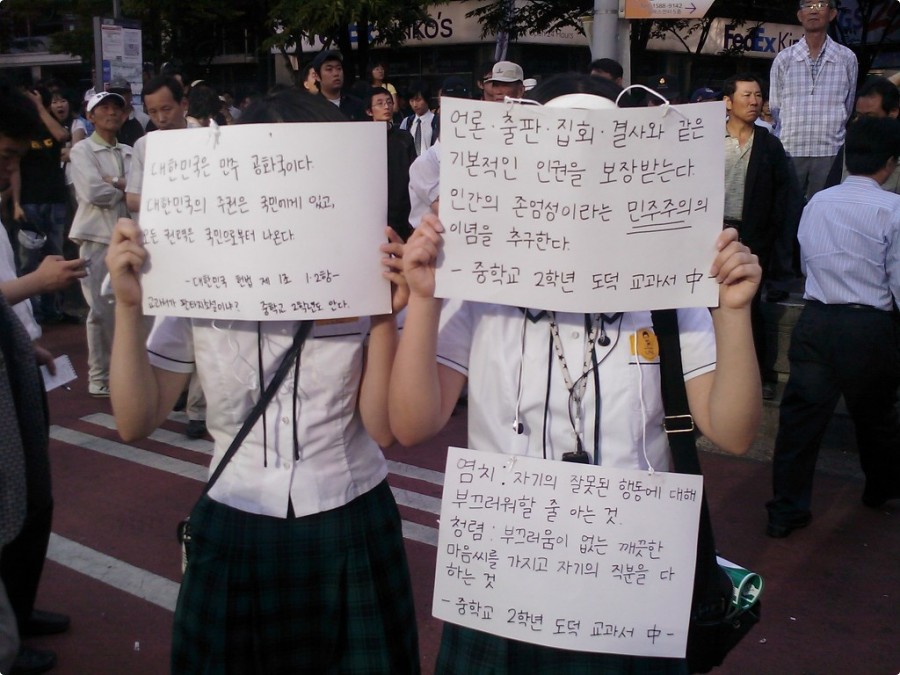 1588-
FedEx Kinko's
FedEx Kin
대한민국은 민주 공화국이다.
대한민국의 주권은 국민에게 있고,
모든 권력은 국민으로부터 나온다.
- 대한민국 헌법 제 1조 1·2항-
교과서가 판타지소설이냐? 중학교 2학년도 안다.
언론·출판·집회·결사와 같은
기본적인 인권을 보장받는다.
인간의 존엄성이라는 민주주의의
이념을 추구한다.
- 중학교 2학년 도덕 교과서 中-
염치 : 자기의 잘못된 행동에 대해
부끄러워할 줄 아는 것.
청렴 : 부끄러움이 없는 깨끗한
마음씨를 가지고 자기의 직분을 다
하는 것
- 중학교 2학년 도덕 교과서 中 -